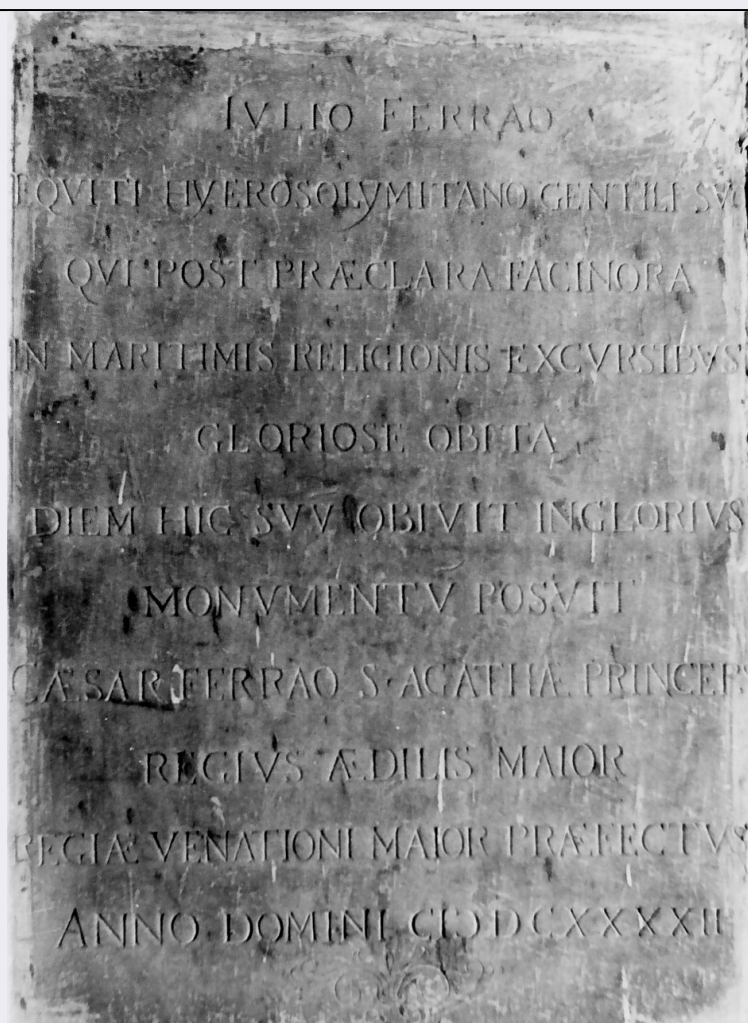 IVLIO FERRAO
EQVITI HYEROSOLYMITANO GENTILI SVO
QVI POST PRÆCLARA FACINORA
IN MARITIMIS RELIGIONIS EXCVRSIBVS
GLORIOSE OBITA
DIEM HIC SVV OBIVIT INGLORIVS
MONVMENTV POSVIT
CÆSAR FERRAO S·AGATHÆ PRINCEPS
REGIVS ÆDILIS MAIOR
REGIÆ VENATIONI MAIOR PRÆFECTVS
ANNO DOMINI CIƆDCXXXXII